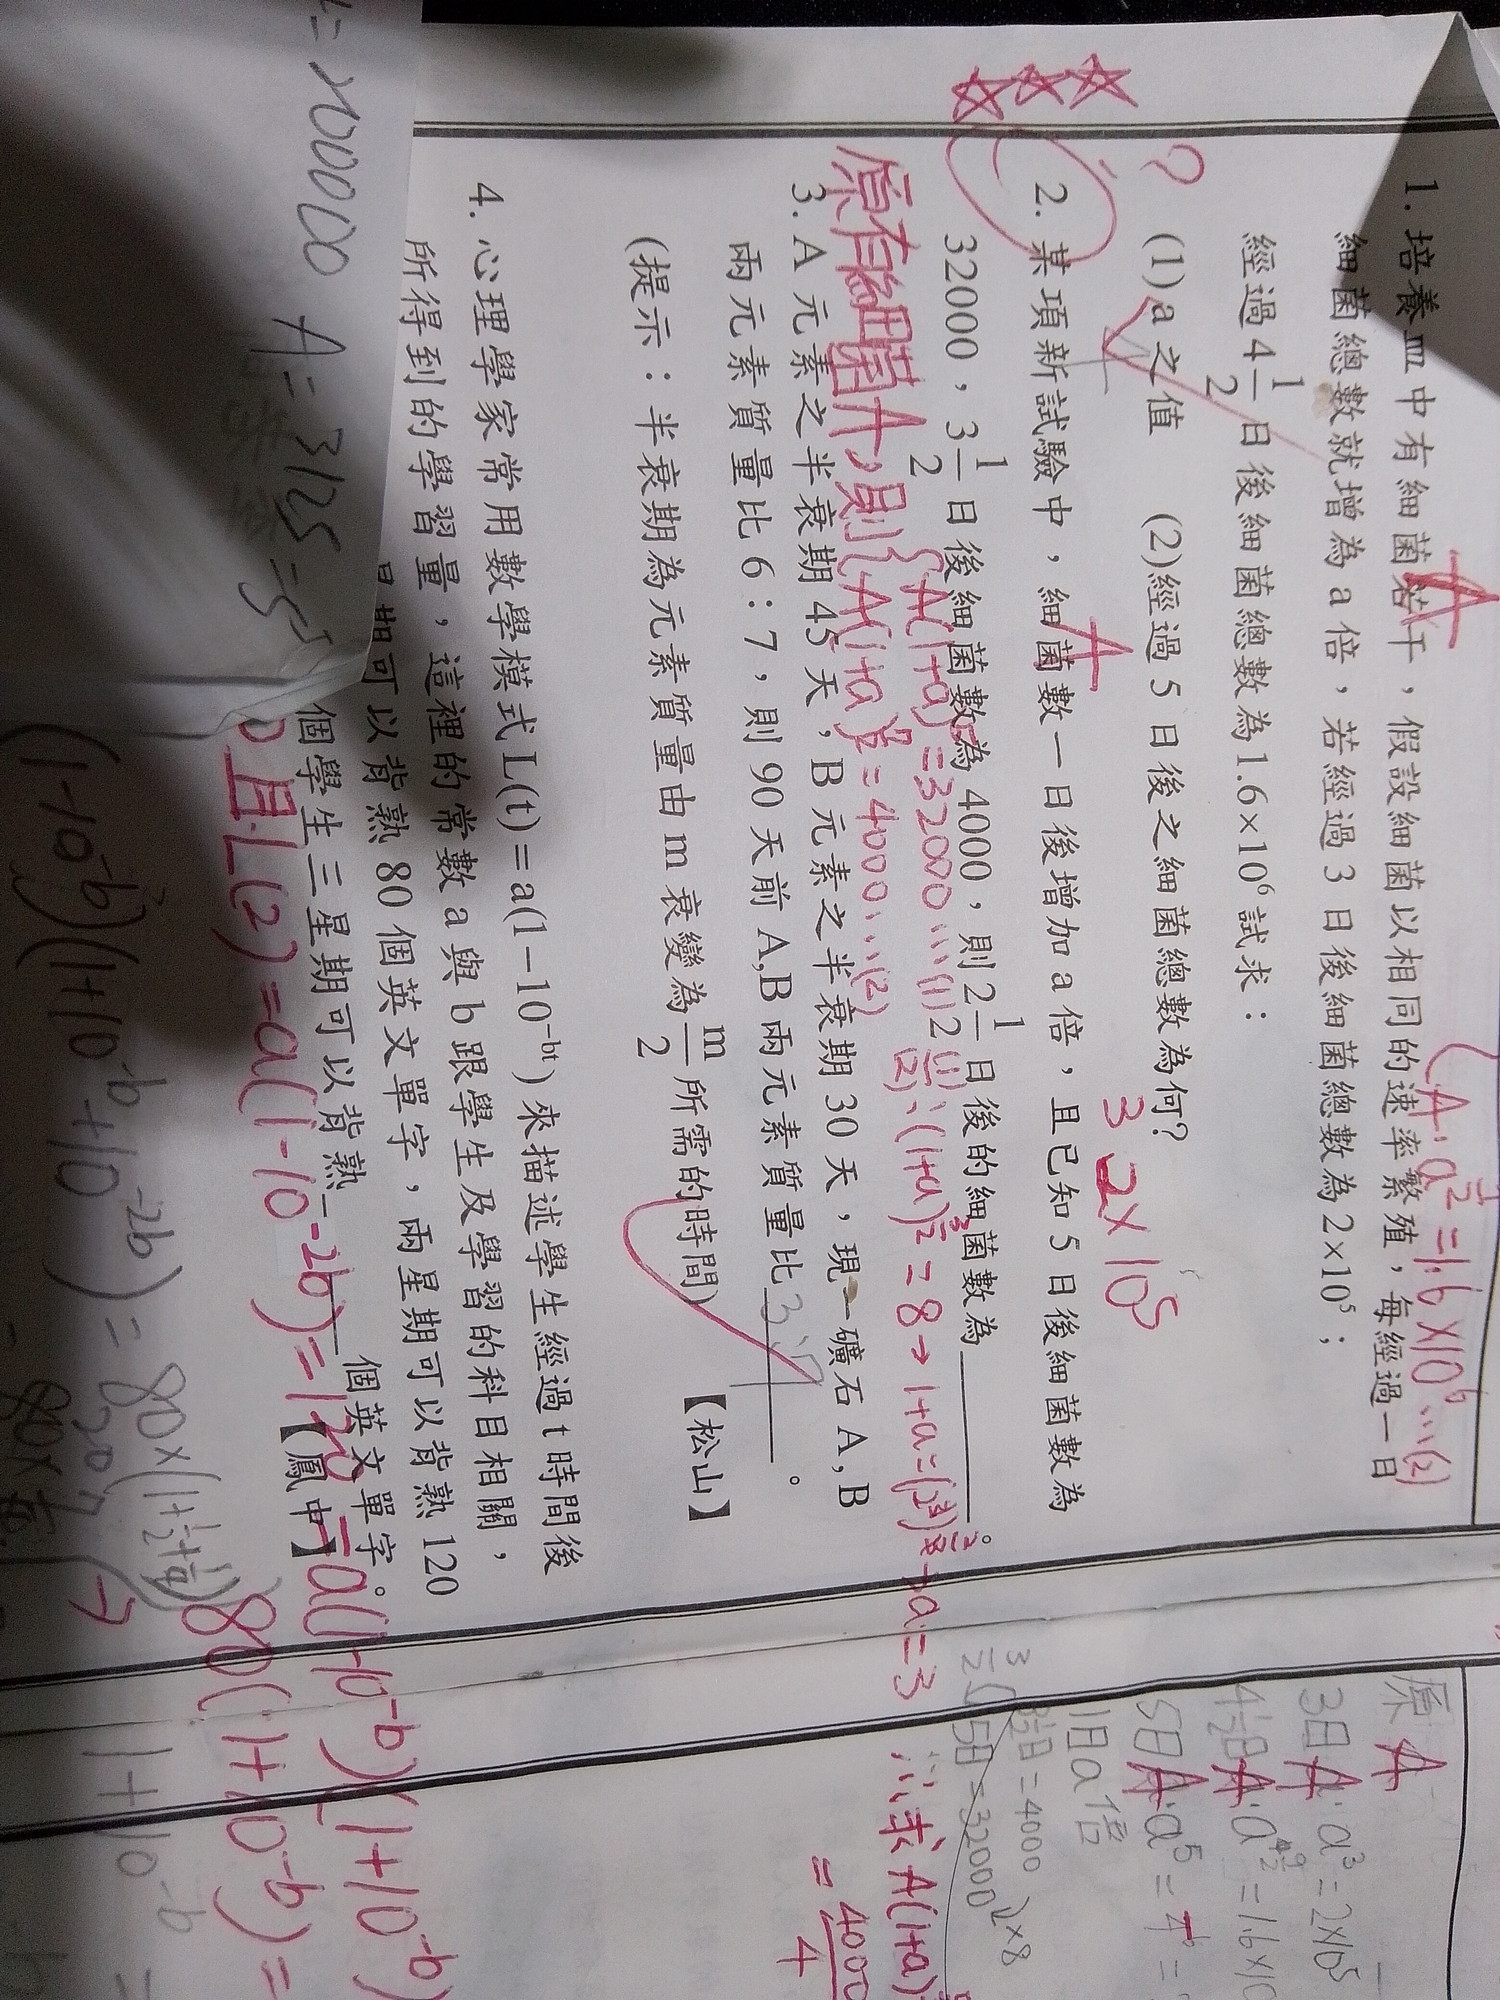 1. 培養皿中有細菌若干，假設細菌以相同的速率繁殖，每經過一日
細菌總數就增為 a 倍，若經過 3 日後細菌總數為 2×10⁵；
經過 4 1/2 日後細菌總數為 1.6×10⁶ 試求：
(1) a 之值 (2) 經過 5 日後之細菌總數為何？
A
A·a^(9/2) = 1.6×10⁶ …(2)
?
32×10⁵
2. 某項新試驗中，細菌數一日後增加 a 倍，且已知 5 日後細菌數為
A
32000，3 1/2 日後細菌數為 4000，則 2 1/2 日後的細菌數為________。
原有細菌A，則 { A(1+a)⁵ = 32000 …(1)
A(1+a)^(7/2) = 4000 …(2)
(1)/(2)、(1+a)^(3/2) = 8 → 1+a = (2³)^(2/3) → a = 3
∴求 A(1+a)
= 4000/4
3. A 元素之半衰期 45 天，B 元素之半衰期 30 天，現一礦石 A,B
兩元素質量比 6：7，則 90 天前 A,B 兩元素質量比 3:7 。
(提示：半衰期為元素質量由 m 衰變為 m/2 所需的時間) 【松山】
4. 心理學家常用數學模式 L(t)＝a(1－10^(-bt)) 來描述學生經過 t 時間後
所得到的學習量，這裡的常數 a 與 b 跟學生及學習的科目相關，
期可以背熟 80 個英文單字，兩星期可以背熟 120
個學生三星期可以背熟________個英文單字。
【鳳中】
且L(2) = a(1-10^(-2b)) = 120 = a(1-10^(-b))(1+10^(-b))
80(1+10^(-b)) =
(1-10^(-b))(1+10^(-b)+10^(-2b)) = 80×(1+1/2+1/4)
1+10^(-b) =
= 100000
A = 3125 = 5⁵
原 A
3日 A·a³ = 2×10⁵
4 1/2日 A·a^(9/2) = 1.6×10
5日 A·a⁵ =
1日a倍
3 1/2日 = 4000
5日 = 32000
×8